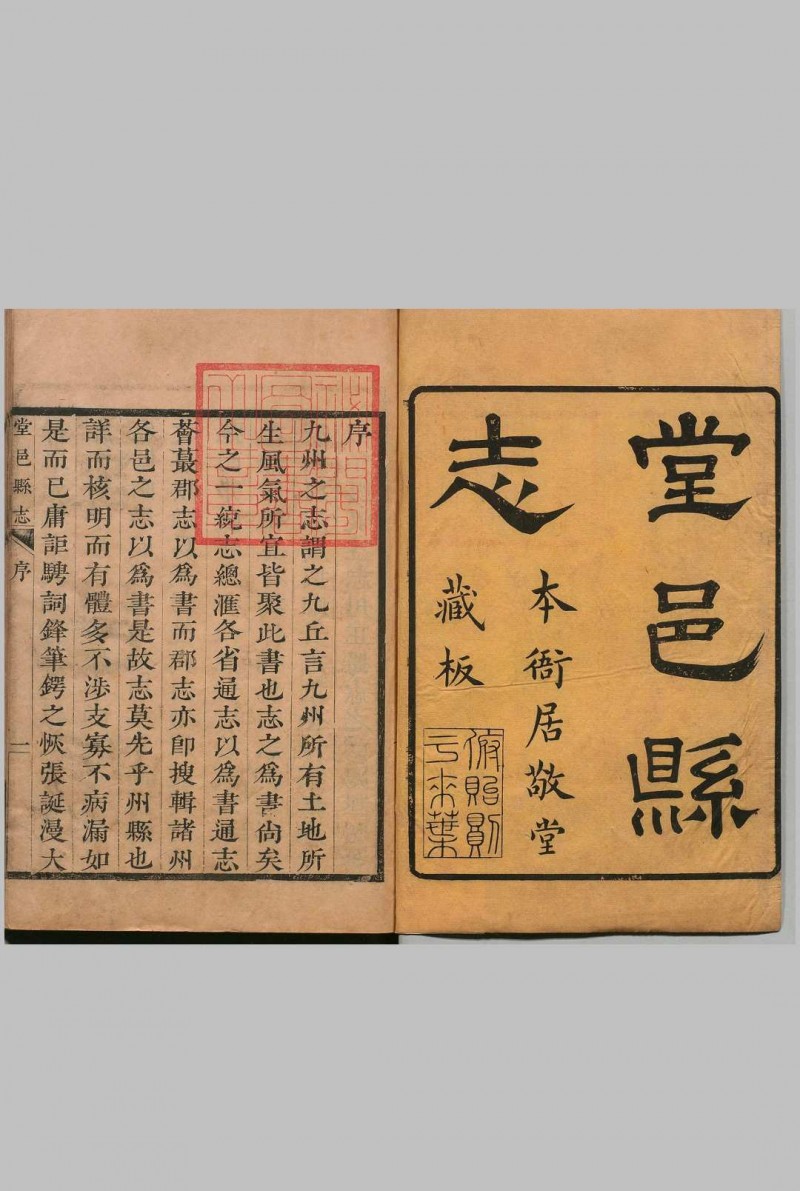 堂邑縣
志
本衙居敬堂
藏板
序
九州之志謂之九丘言九州所有土地所
生風氣所宜皆聚此書也志之爲書尙矣
今之一統志總滙各省通志以爲書通志
薈蕞郡志以爲書而郡志亦卽搜輯諸州
各邑之志以爲書是故志莫先乎州縣也
詳而核明而有體多不渉支寡不病漏如
是而已庸詎騁詞鋒筆鍔之恢張誕漫大
堂邑縣志 序 一